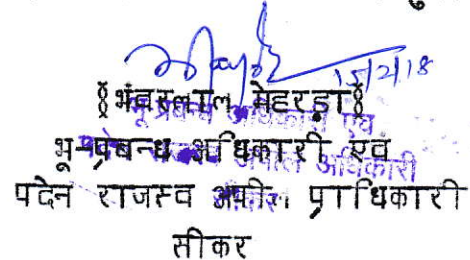 15/2/18
§भंवरलाल मेहरड़ा§
भू-प्रबन्ध अधिकारी एवं
पदेन राजस्व अपील प्राधिकारी
सीकर